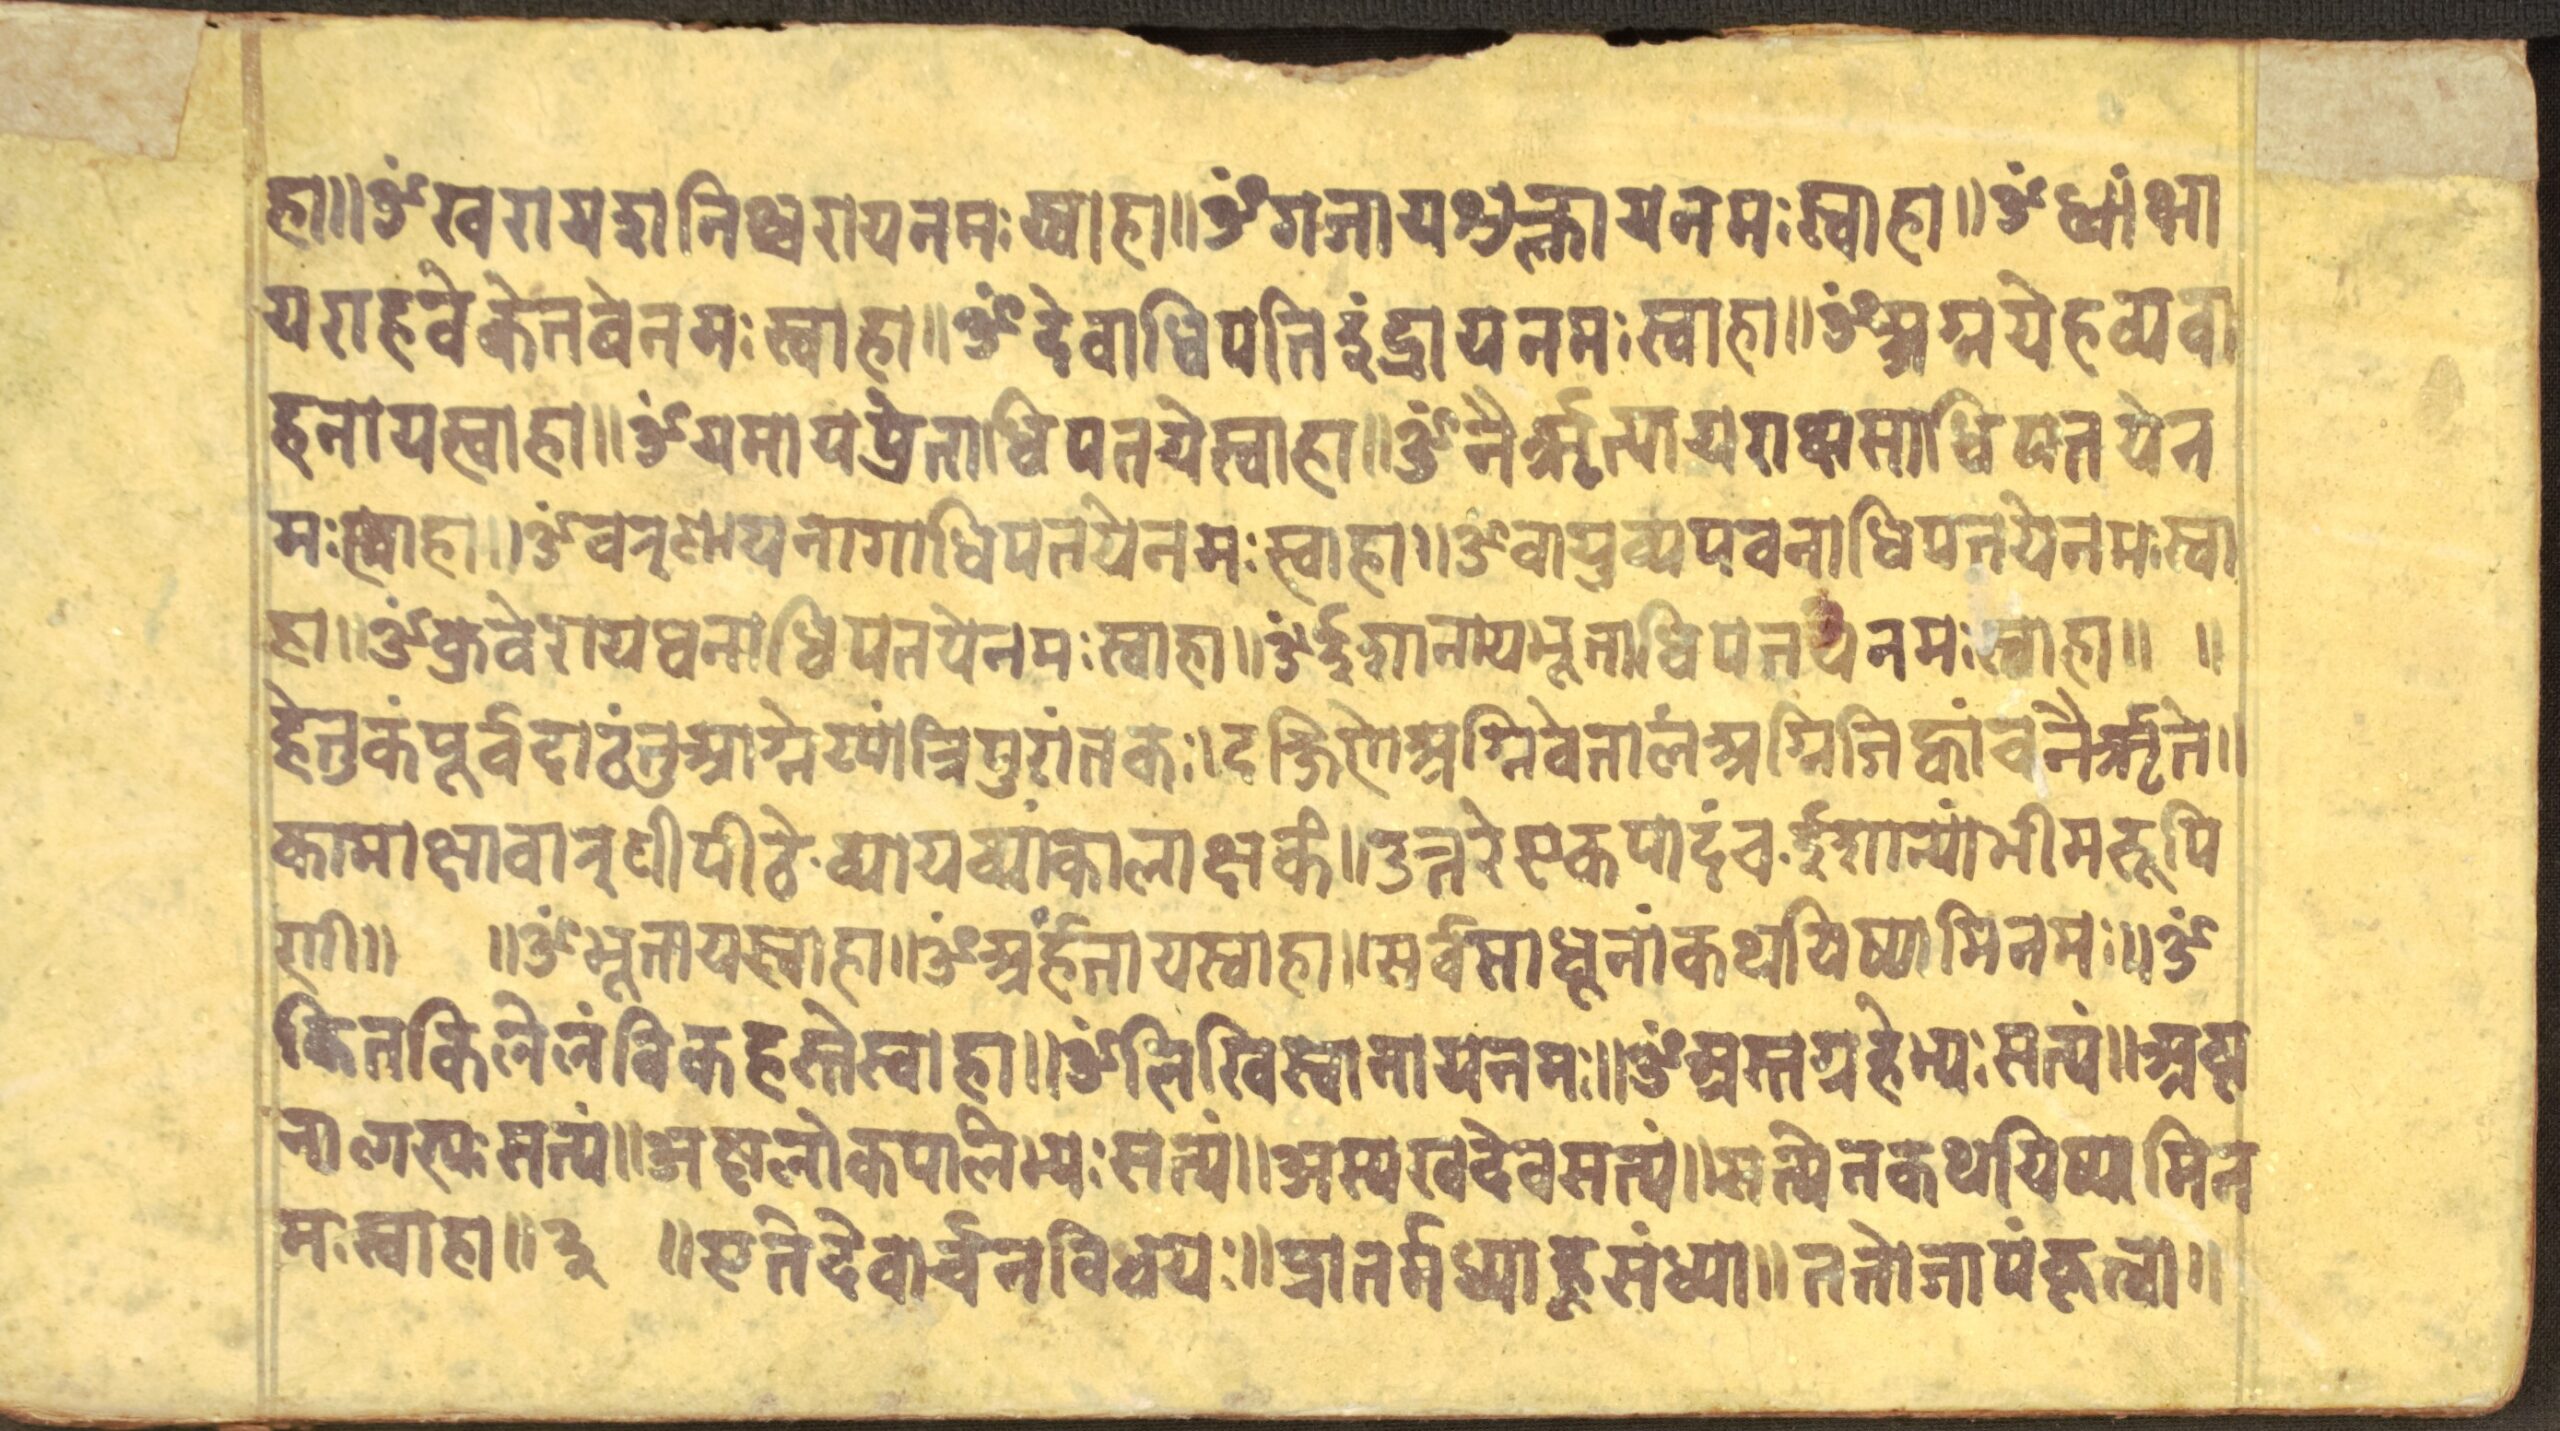 हा॥॥ॐखरायशनिश्चरायनमःस्वाहा॥ॐगजायशुक्रायनमःस्वाहा॥ॐध्वांक्षा
यराहवेकेतवेनमःस्वाहा॥ॐदेवाधिपतिइंद्रायनमःस्वाहा॥ॐअग्नयेहव्यवा
हनायस्वाहा॥ॐयमायप्रेताधिपतयेस्वाहा॥ॐनैर्ऋत्यायराक्षसाधिपतयेन
मःस्वाहा॥ॐवरुणायनागाधिपतयेनमःस्वाहा॥ॐवायुव्यपवनाधिपतयेनमःस्वा
हा॥ॐकुवेरायधनाधिपतयेनमःस्वाहा॥ॐईशानायभूताधिपतयेनमःस्वाहा॥ ॥
हेतुकंपूर्वपीठंतुआग्नेय्यांत्रिपुरांतकः।दक्षिणेअग्निवेतालंअग्निजिह्वांचनैर्ऋते॥
कामाक्षावारुणीपीठेव्यायव्यांकालाक्षकं॥उत्तरेएकपादंचईशान्यांभीमरूपि
णी॥ ॥ॐभूतायस्वाहा॥ॐअर्हंतायस्वाहा॥सर्वसाधूनांकथयिष्यामिनमः॥ॐ
कितकिलेलंविकहस्तेस्वाहा॥ॐलिखिस्वानायनमः॥ॐअस्तग्रहेभ्यःसत्यं॥अष्ट
सत्यं॥अष्टलोकपालेभ्यःसत्यं॥अस्यखदेवसत्यं॥सत्येनकथयिष्यामिन
मःस्वाहा॥३ ॥एतेदेवार्चनविधयः॥प्रातर्मध्याह्नसंध्या॥ततोजापंकृत्वा॥